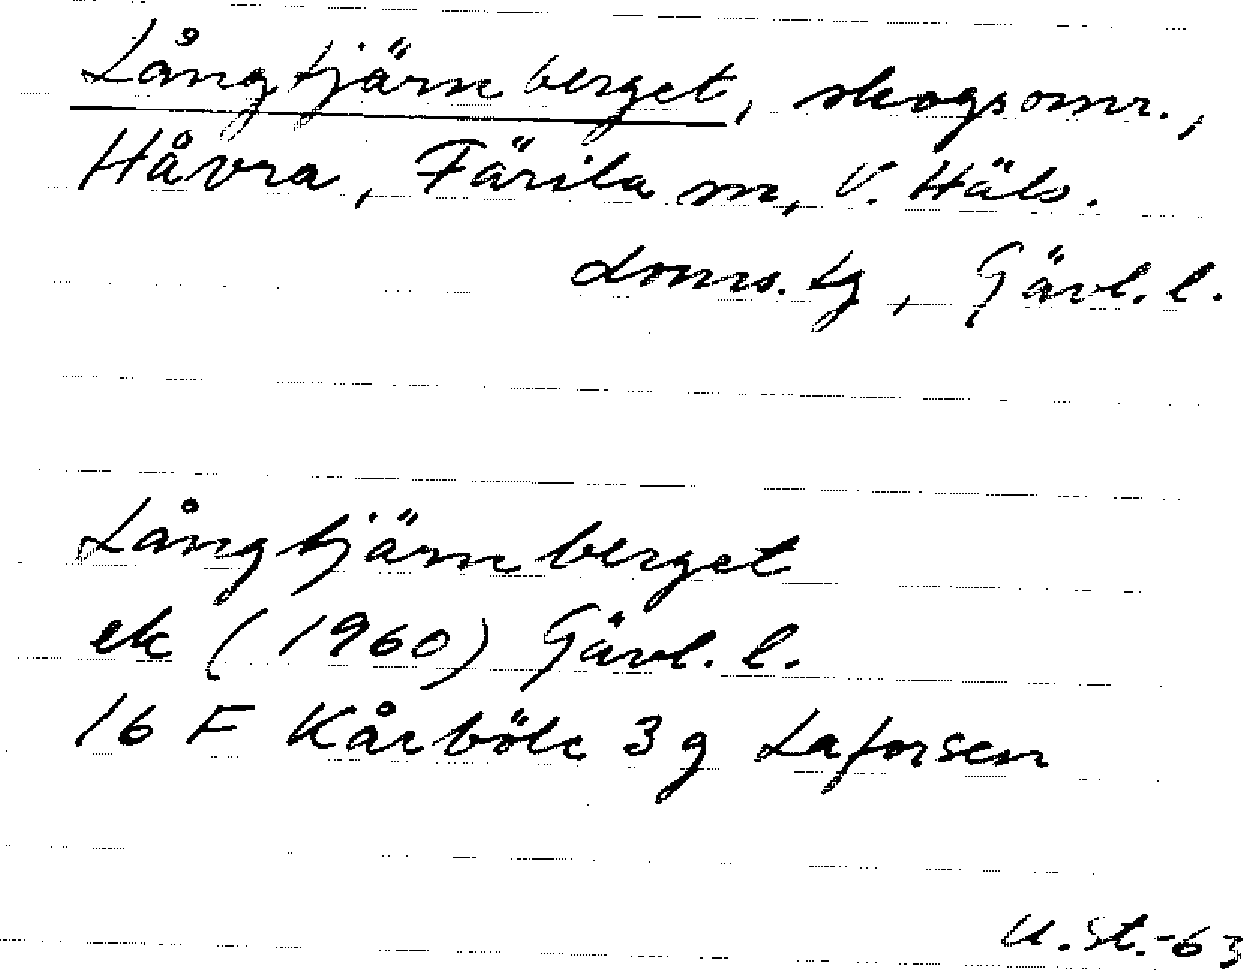 Långtjärnberget, skogsomr.,
Håvra, Färila sn, V. Häls.
doms. tg, Gävl. l.
Långtjärnberget
ek (1960) Gävl. l.
16 F Kårböle 3 g Laforsen
U. St. -63